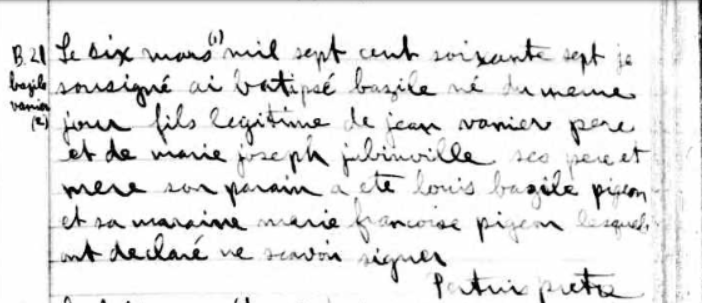 B.21 Le six mars (1) mil sept cent soixante sept je
bazile sousigné ai batipsé bazile né du meme
vanier jour fils legitime de jean vanier pere
(2) et de marie joseph jubinville ses pere et
mere son parain a ete louis bazile pigeon
et sa maraine marie francoise pigeon lesquels
ont declaré ne scavoir signer
Pertuis pretre